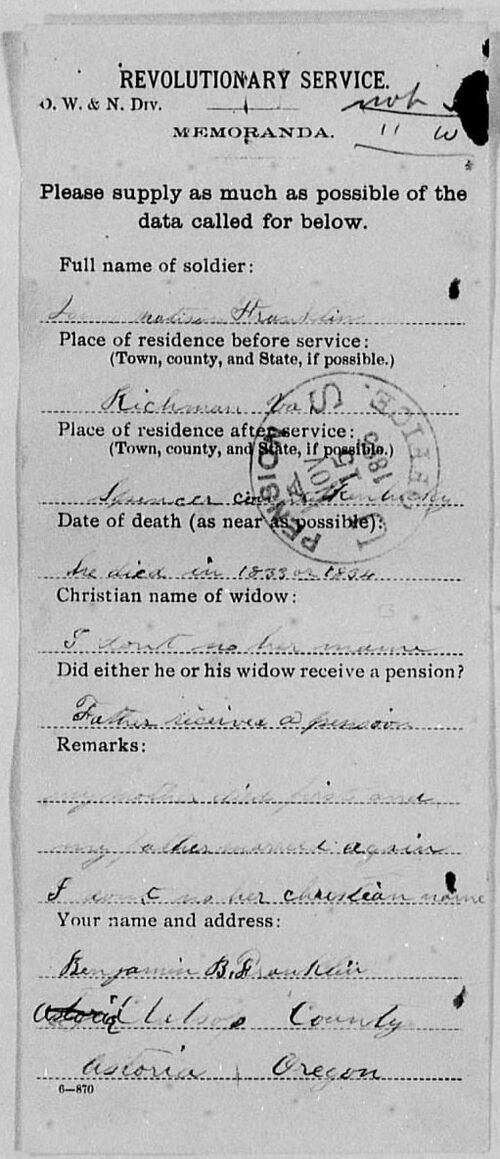 REVOLUTIONARY SERVICE.
O. W. & N. Div.
not
" W
MEMORANDA.
Please supply as much as possible of the
data called for below.
Full name of soldier:
Madison Franklin
Place of residence before service:
(Town, county, and State, if possible.)
Richman Va
Place of residence after service:
(Town, county, and State, if possible.)
Spencer county Kentucky
U.S. PENSION OFFICE.
NOV
15
Date of death (as near as possible):
he died in 1833 or 1834
Christian name of widow:
I dont no her name
Did either he or his widow receive a pension?
Father received a pension
Remarks:
my mother died first and
my father married again
I dont no her christian name
Your name and address:
Benjamin B. Franklin
Clatsop County
Astoria Oregon
6—870